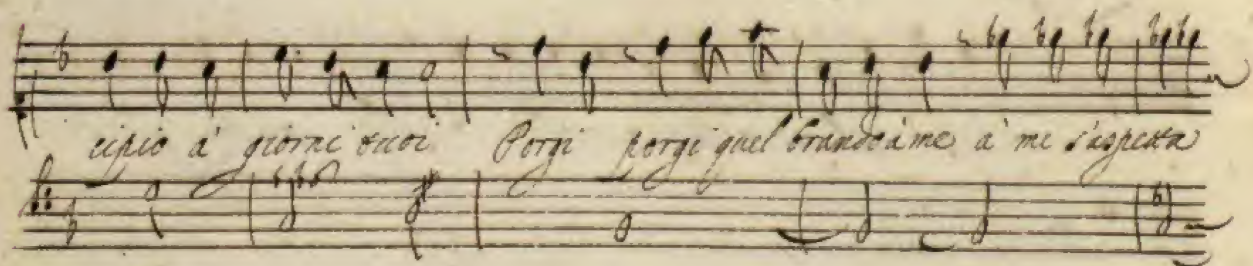 cipio à giorni tuoi Porgi porgi quel brando à me à me s'aspetta